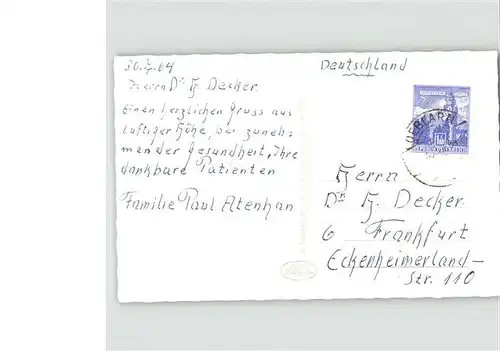 30.7.64
Herrn Dr. H. Decker
Einen herzlichen Gruss aus
luftiger Höhe, bei zuneh-
mender Gesundheit, Ihre
dankbare Patienten
Familie Paul Atenhan
Deutschland
Herrn
Dr. H. Decker
6 Frankfurt
Eckenheimerland-
Str. 110